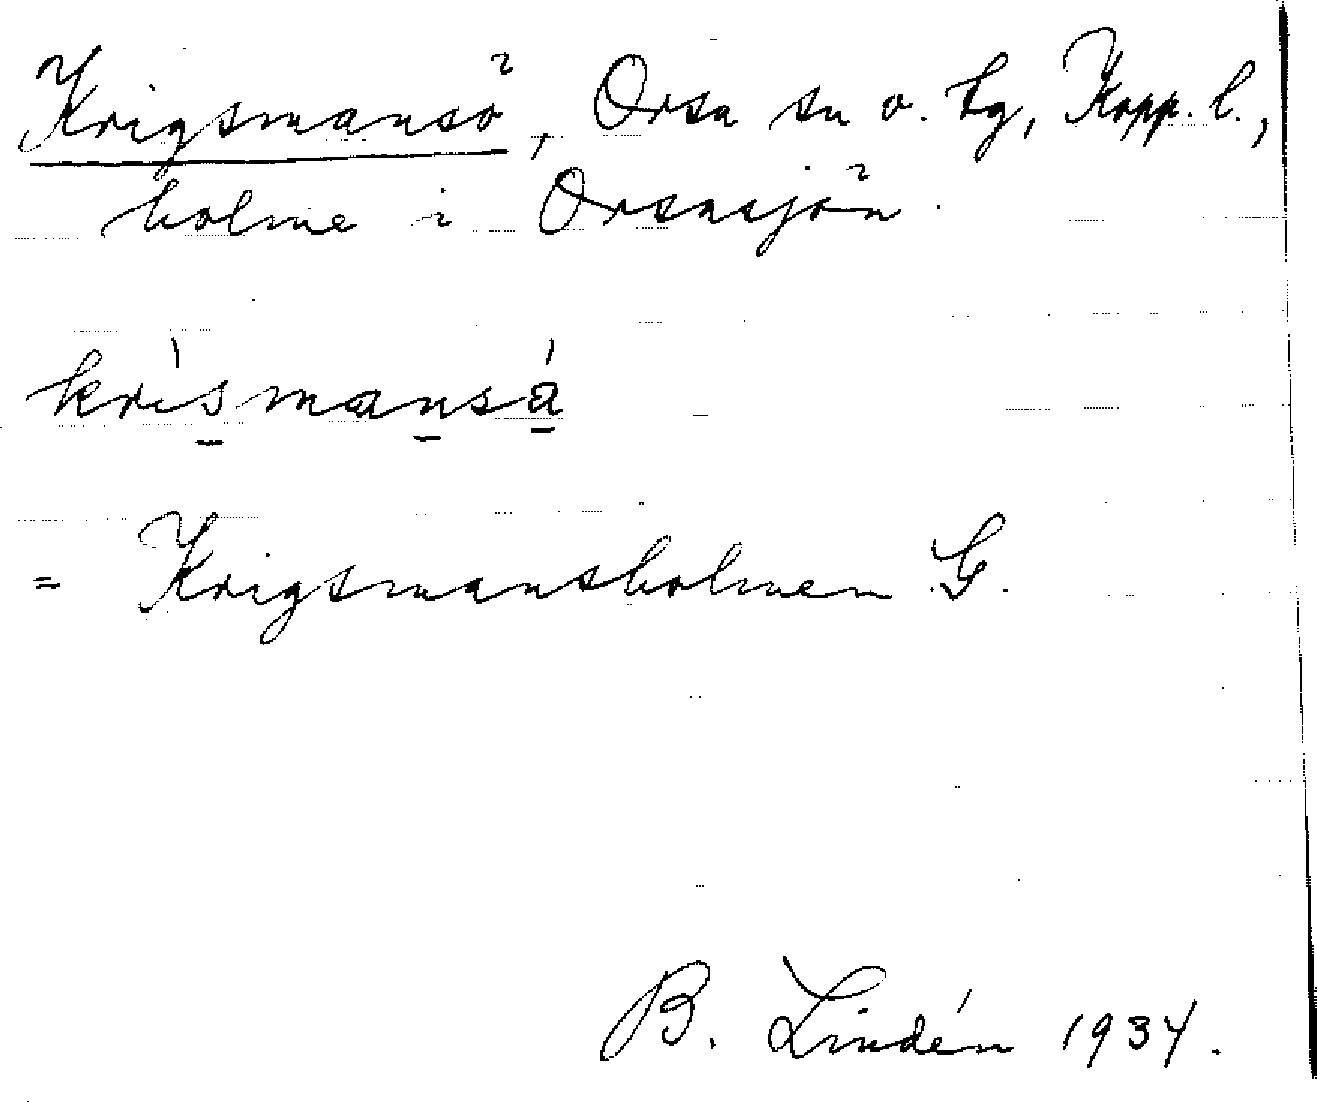 Krigsmansö, Orsa sn o. tg, Kopp. l.,
holme i Orsasjön.
krìsmansá
= Krigsmansholmen G.
B. Lindén 1934.